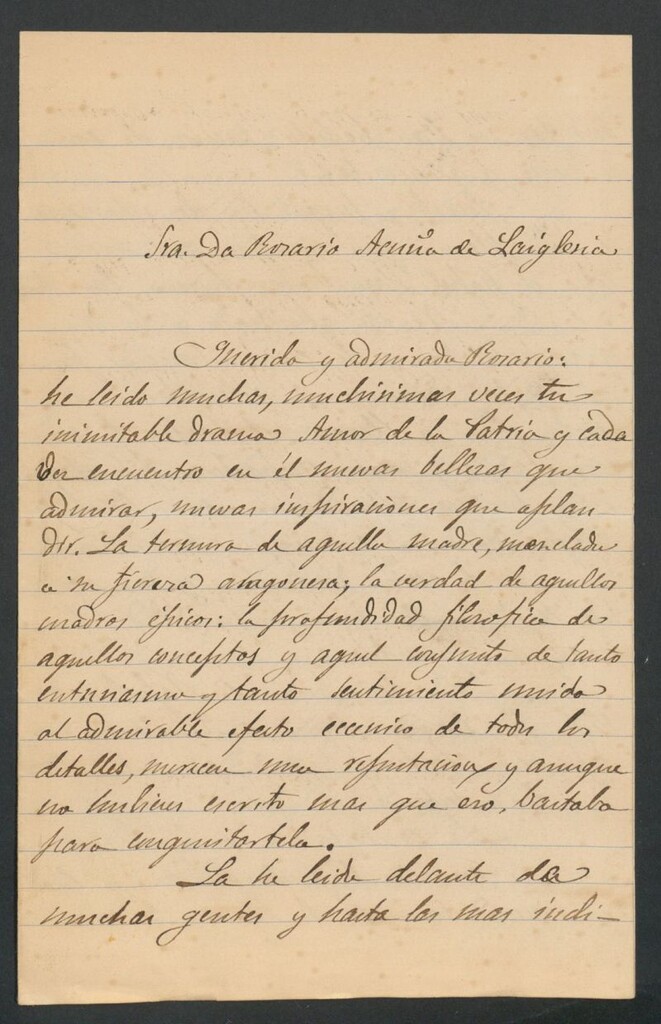 Sra. Da Rosario Acuña de Laiglesia
Querida y admirada Rosario:
he leido muchas, muchisimas veces tu
inimitable drama Amor de la Patria y cada
vez encuentro en él nuevas bellezas que
admirar, nuevas inspiraciones que aplau
dir. La ternura de aquella madre, mezclada
a su fiereza aragonesa; la verdad de aquellos
cuadros épicos; la profundidad filosofica de
aquellos conceptos y aquel conjunto de tanto
entusiasmo y tanto sentimiento unido
al admirable efecto escenico de todos los
detalles, merecen una reputacion y aunque
no hubieses escrito mas que eso, bastaba
para conquistartela.
La he leido delante de
muchas gentes y hasta las mas indi-